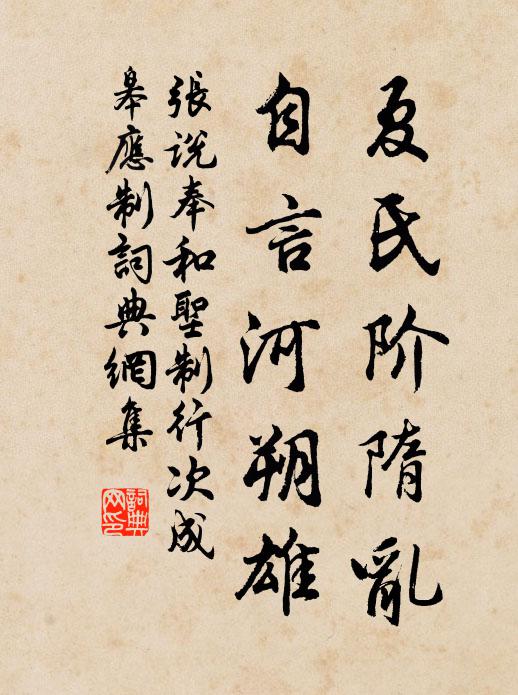 夏氏阶隋亂
自言河朔雄
張説奉和聖制行次成
皋應制詞典網集
詞典网印